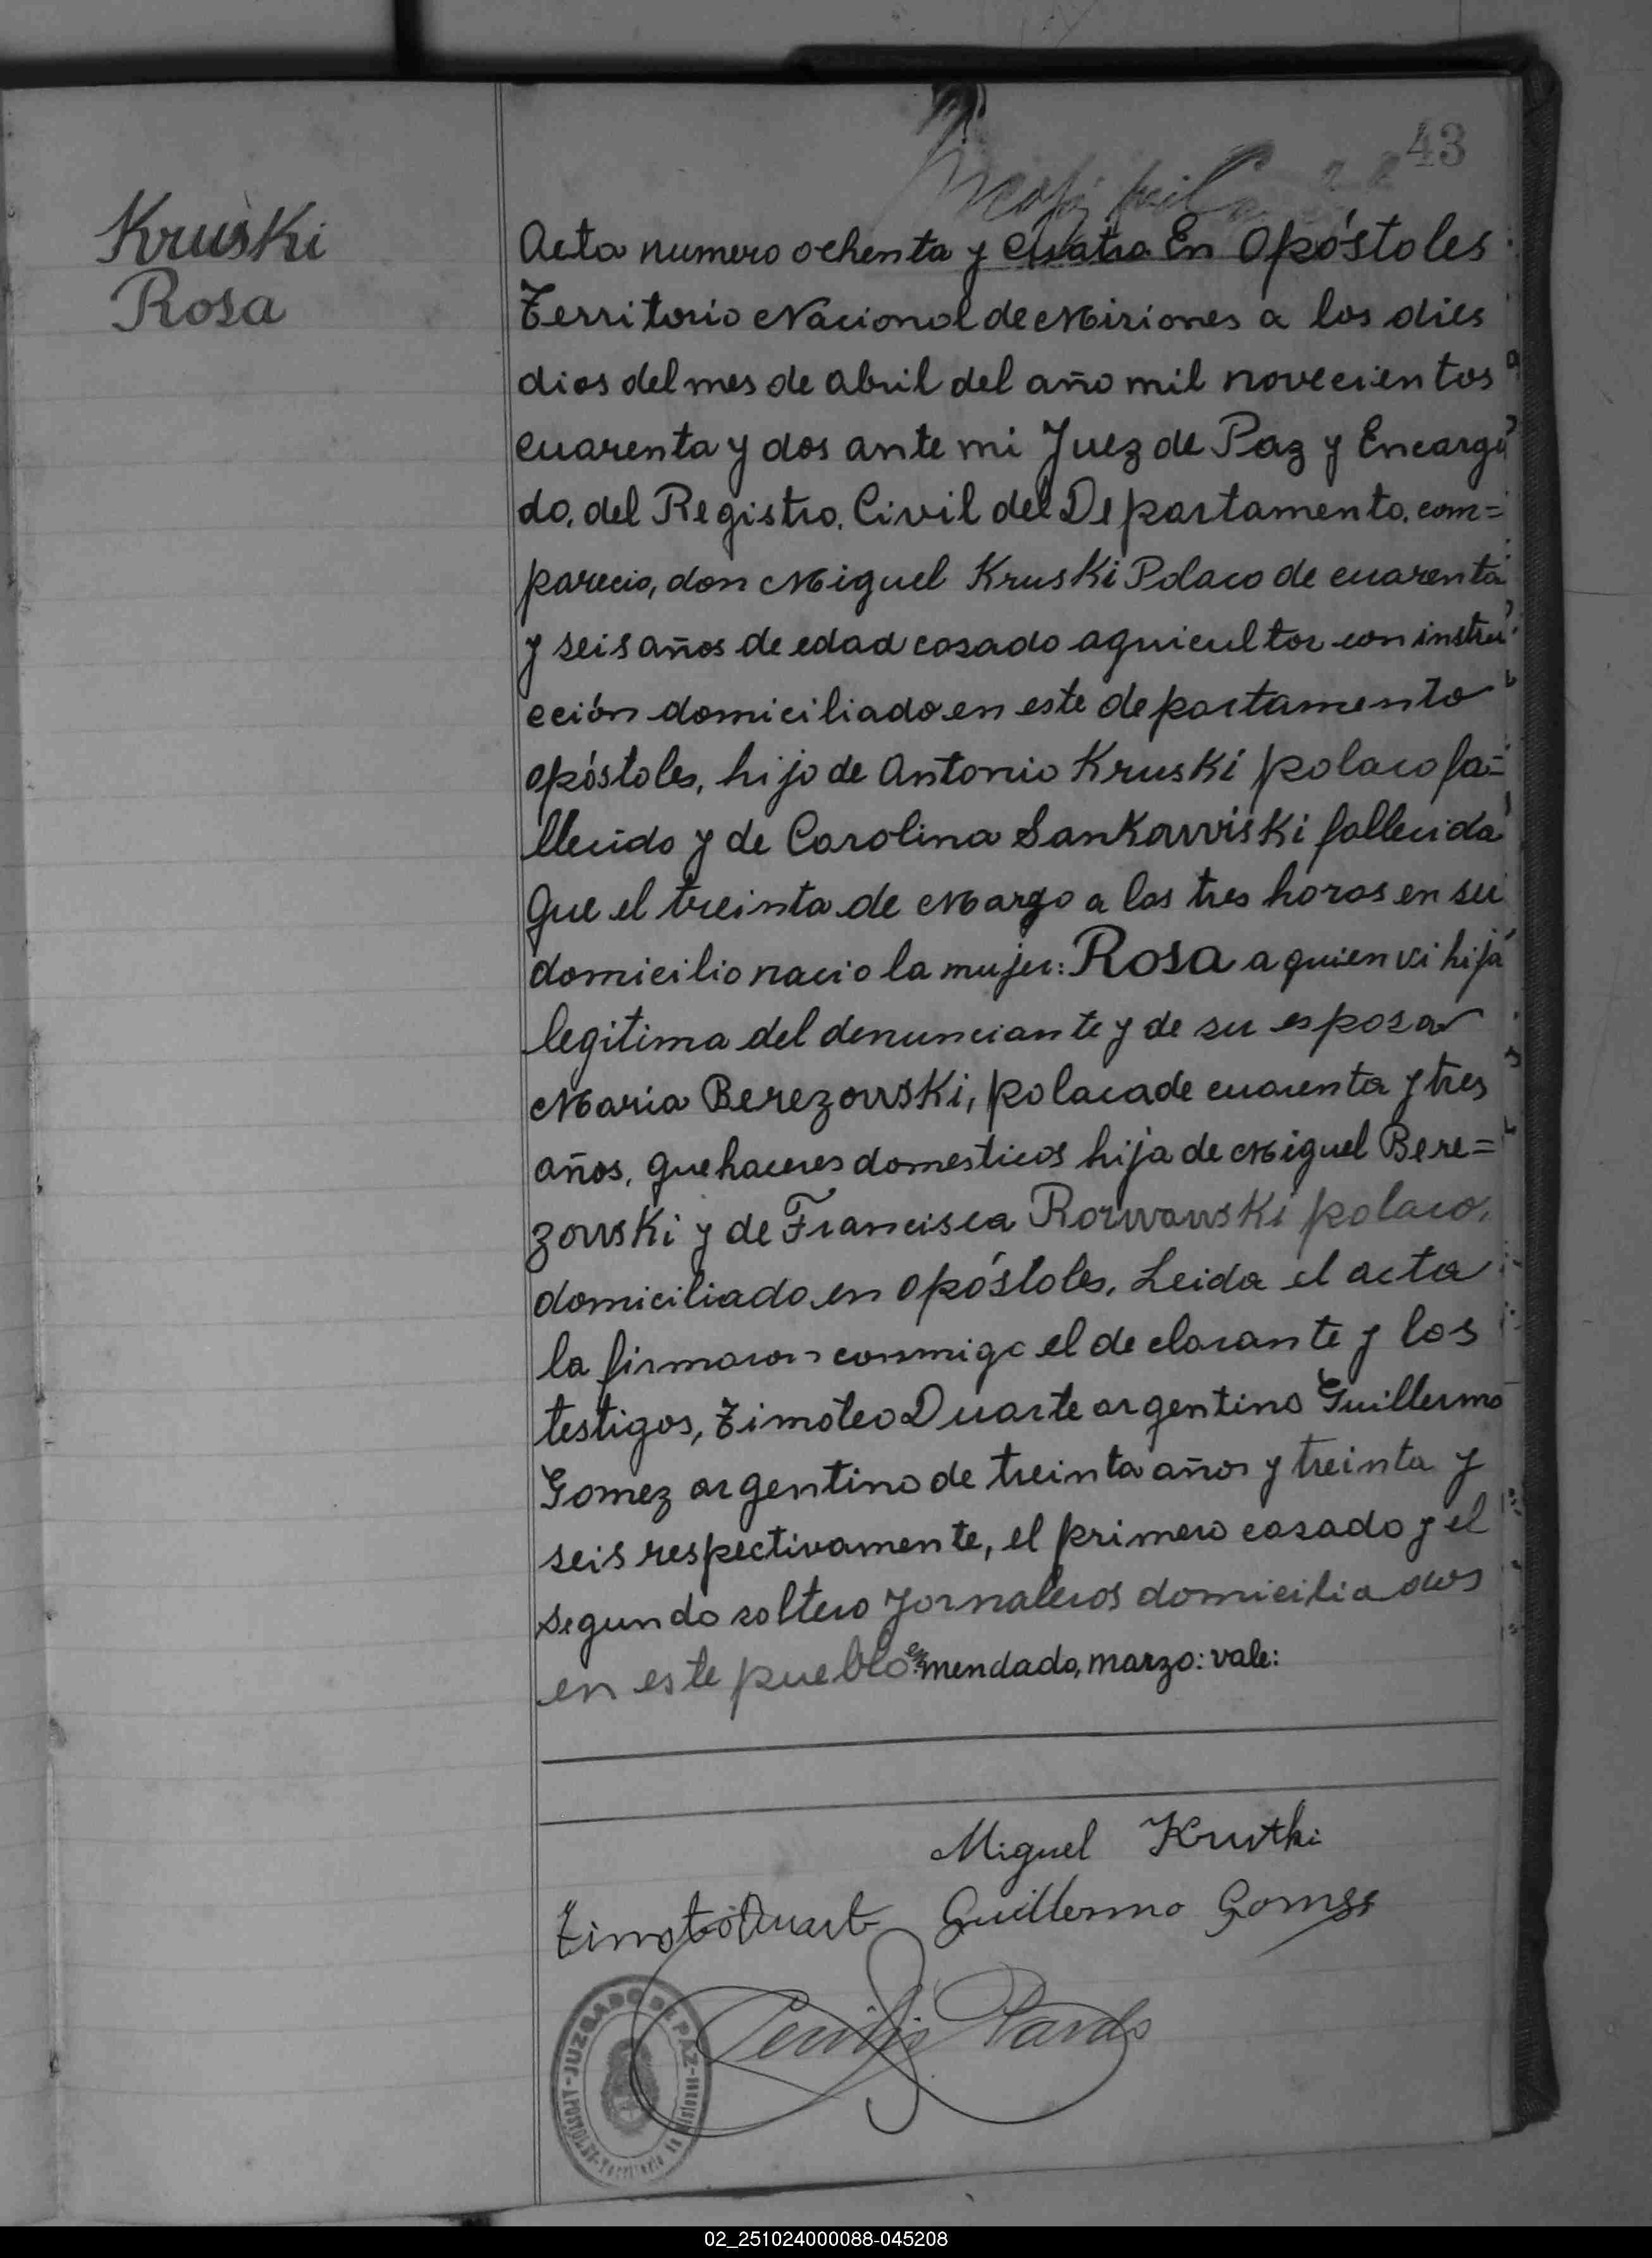 43
Kruski
Rosa
Acta numero ochenta y cuatro En Apóstoles
Territorio Nacional de Misiones a los dies
dias del mes de abril del año mil novecientos
cuarenta y dos ante mi Juez de Paz y Encarga
do, del Registro, Civil del Departamento, com=
parecio, don Miguel Kruski Polaco de cuarenta
y seis años de edad casado aguicultor con instru
cción domiciliado en este departamento
apóstoles, hijo de Antonio Kruski polaco fa=
llecido y de Carolina Sankowiski fallecida
Que el treinta de Marzo a las tres horas en su
domicilio nacio la mujer: Rosa a quien vi hija
legitima del denunciante y de su esposa
Maria Berezowski, polaca de cuarenta y tres
años, quehaceres domesticos hija de Miguel Bere=
zowski y de Francisca polaco,
domiciliado en apóstoles, Leida el acta
la firmaron conmigo el declarante y los
testigos, Timoteo Duarte argentino Guillermo
Gomez argentino de treinta años y treinta y
seis respectivamente, el primero casado y el
segundo soltero Jornaleros domiciliados
en este pueblo enmendado, marzo: vale:
Miguel Krutki
Timoteo Duarte Guillermo Gomez
Pardo
JUZGADO DE PAZ
APOSTOLES-Territorio de Misiones
02_251024000088-045208